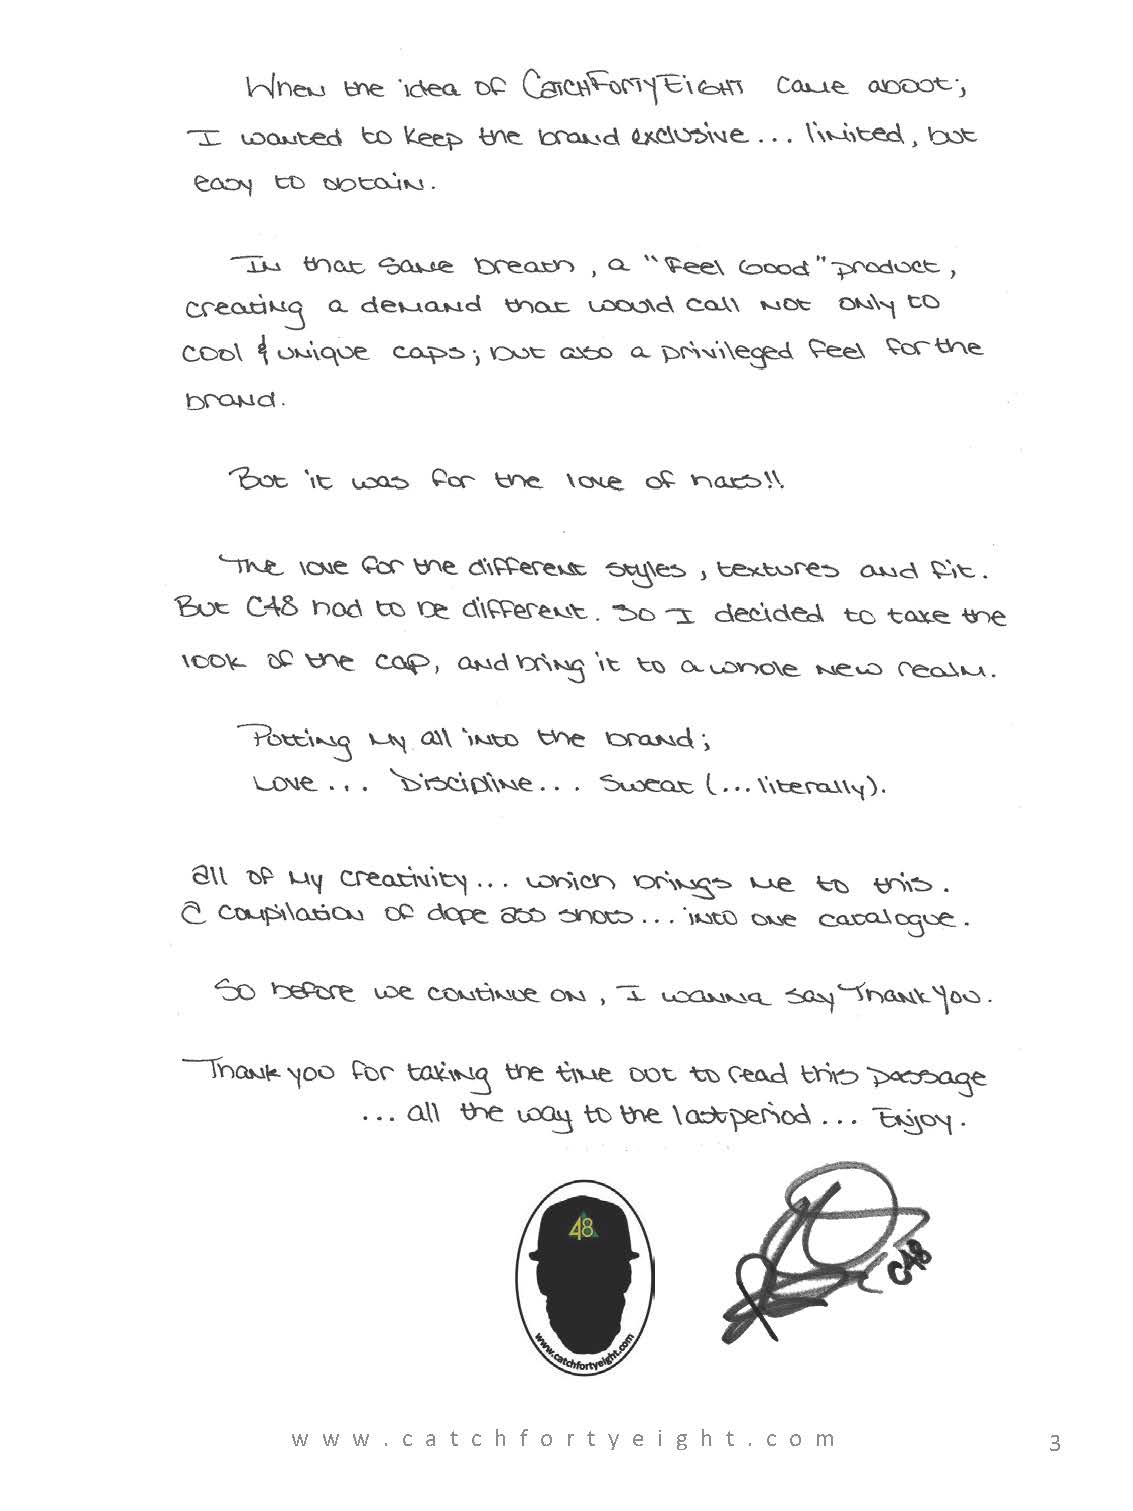 When the idea of CatchFortyEight came about;
I wanted to keep the brand exclusive... limited, but
easy to obtain.
In that same breath, a "Feel Good" product,
creating a demand that would call not only to
cool & unique caps; but also a privileged feel for the
brand.
But it was for the love of hats!!
The love for the different styles, textures and fit.
But C48 had to be different. So I decided to take the
look of the cap, and bring it to a whole new realm.
Putting my all into the brand;
Love... Discipline... Sweat (...literally).
all of my creativity... which brings me to this.
a compilation of dope ass shots... into one catalogue.
So before we continue on, I wanna say Thank You.
Thank you for taking the time out to read this passage
... all the way to the last period... Enjoy.
48
www.catchfortyeight.com
C48
www.catchfortyeight.com
3